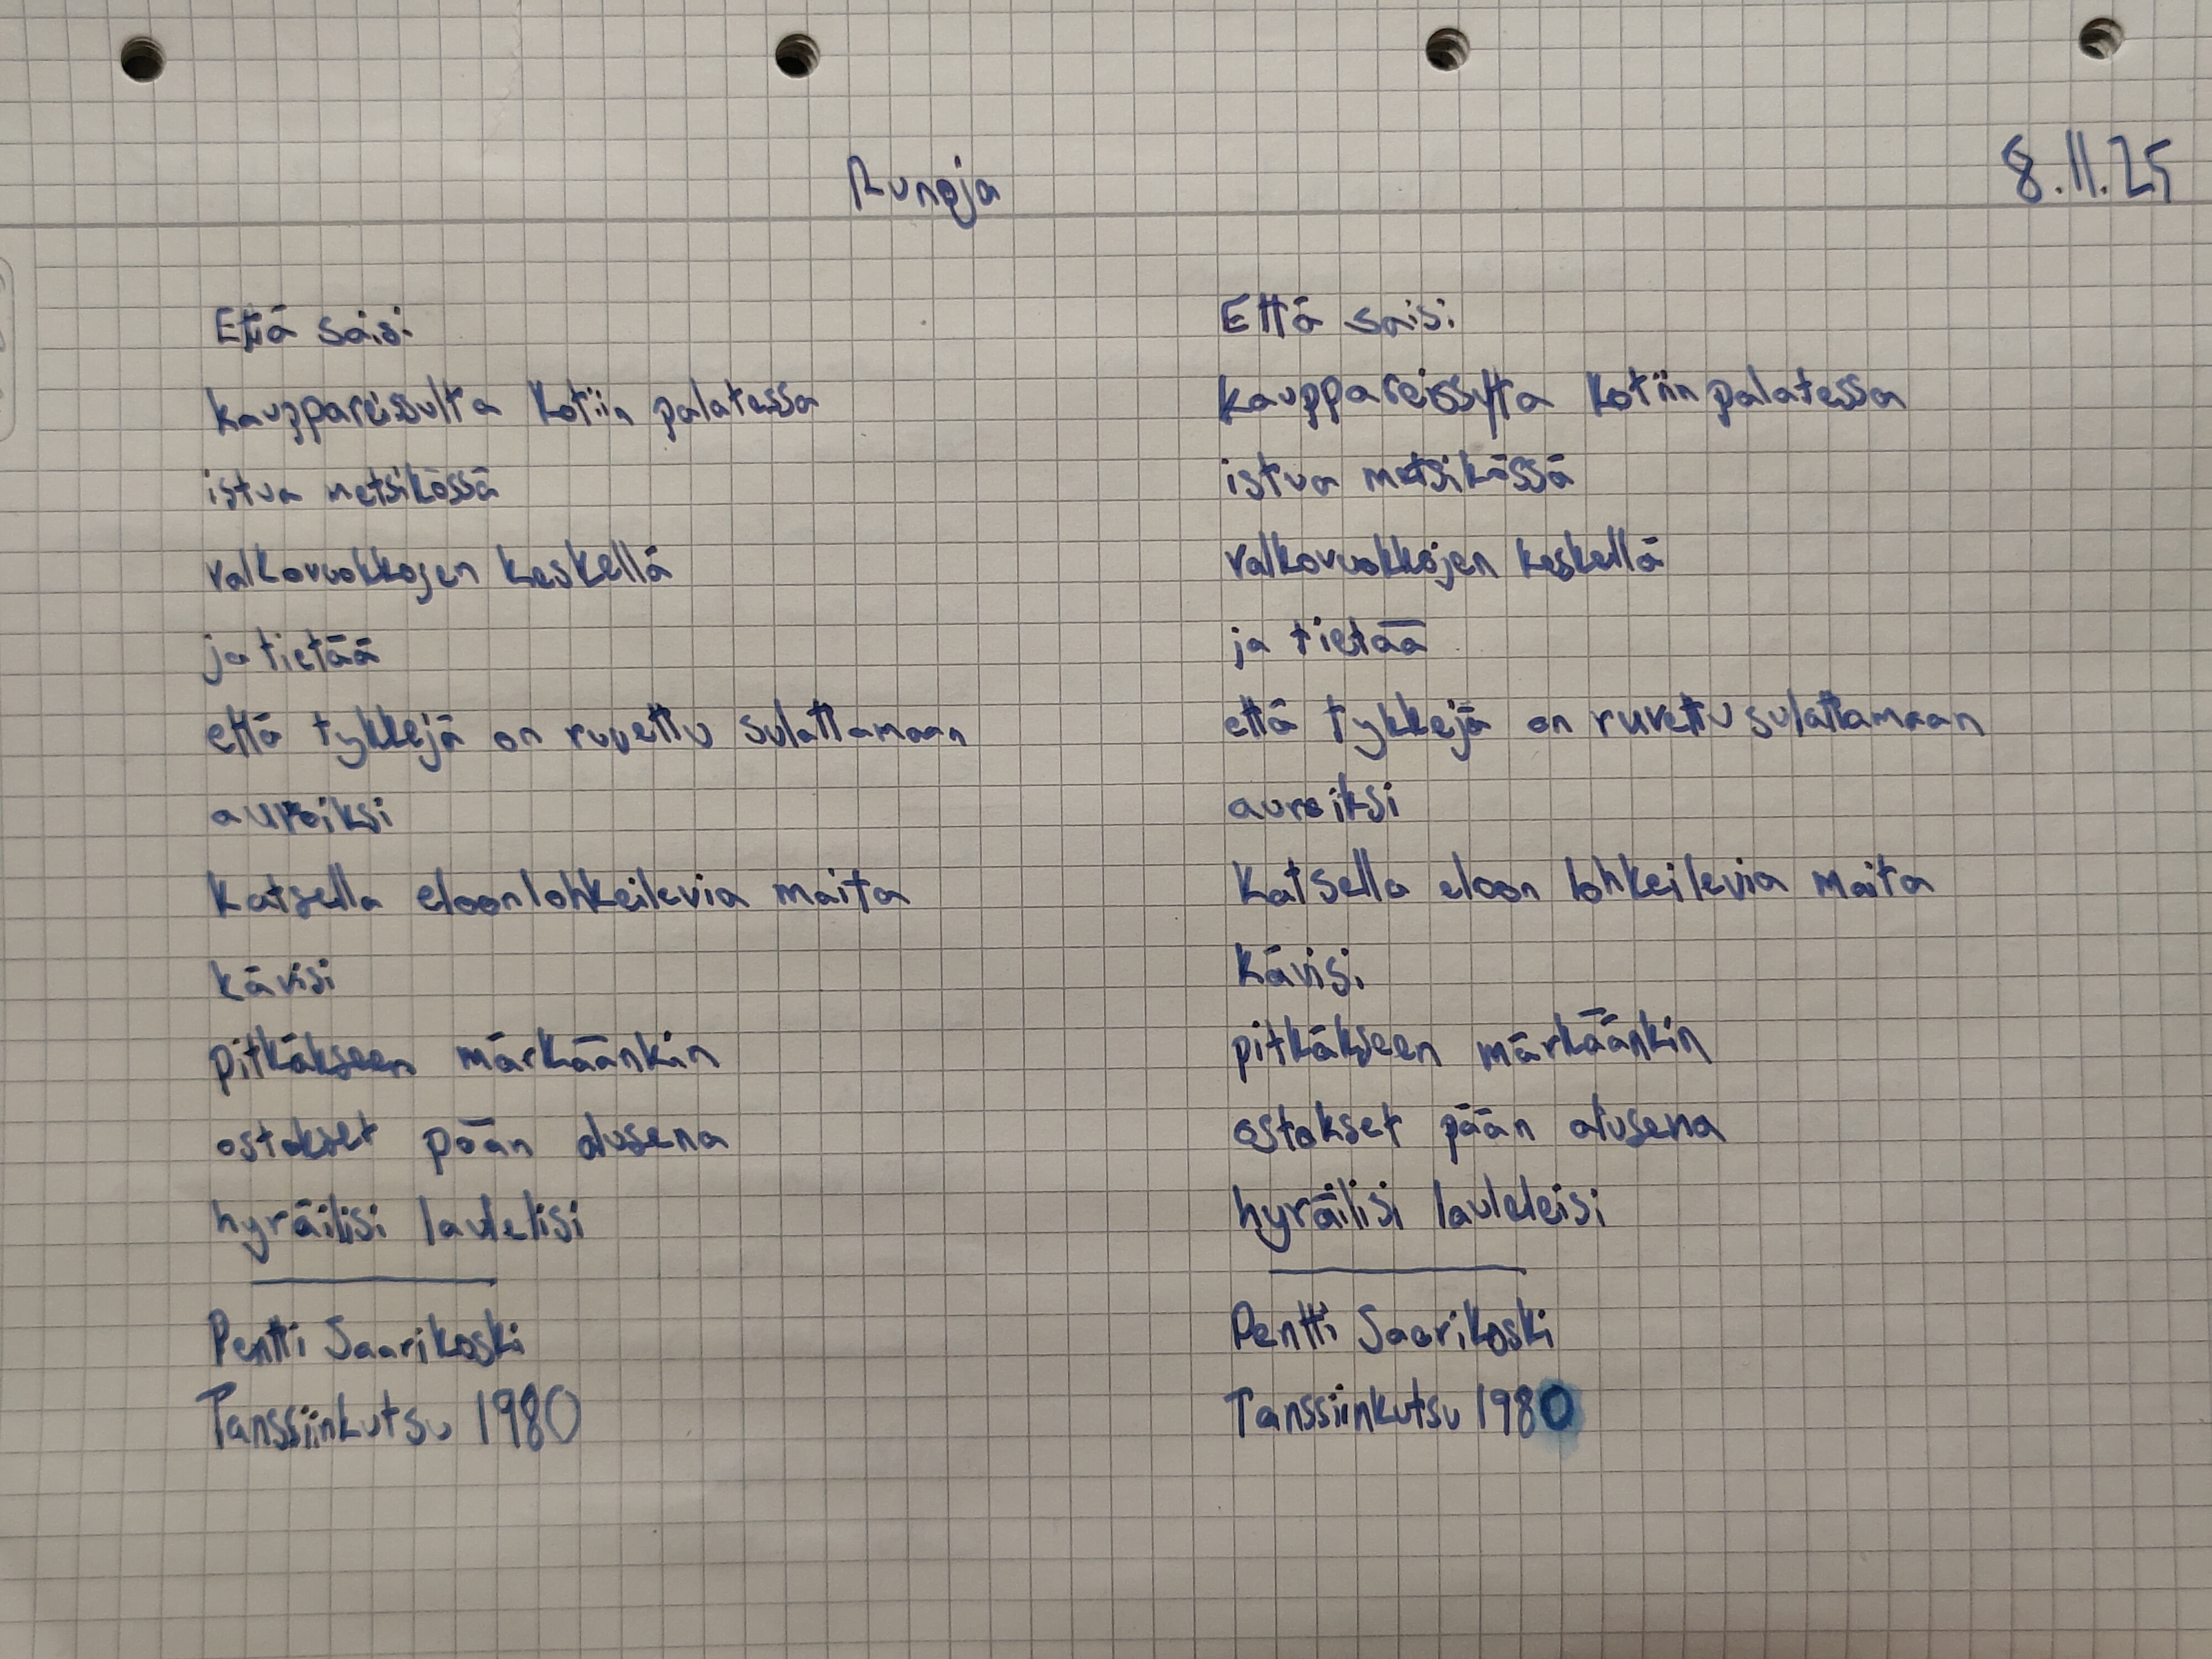 Runoja
8.11.25
Että saisi
kauppareissulta kotiin palatessa
istua metsikössä
valkovuokkojen keskellä
ja tietää
että tykkejä on ruvettu sulattamaan
auroiksi
katsella eloonlohkeilevia maita
kävisi
pitkäkseen märkäänkin
ostokset pään alusena
hyräilisi laulelisi
Pentti Saarikoski
Tanssiinkutsu 1980
Että saisi
kauppareissulta kotiin palatessa
istua metsikössä
valkovuokkojen keskellä
ja tietää
että tykkejä on ruvettu sulattamaan
auroiksi
katsella eloon lohkeilevia maita
kävisi
pitkäkseen märkäänkin
ostokset pään alusena
hyräilisi lauleleisi
Pentti Saarikoski
Tanssiinkutsu 1980